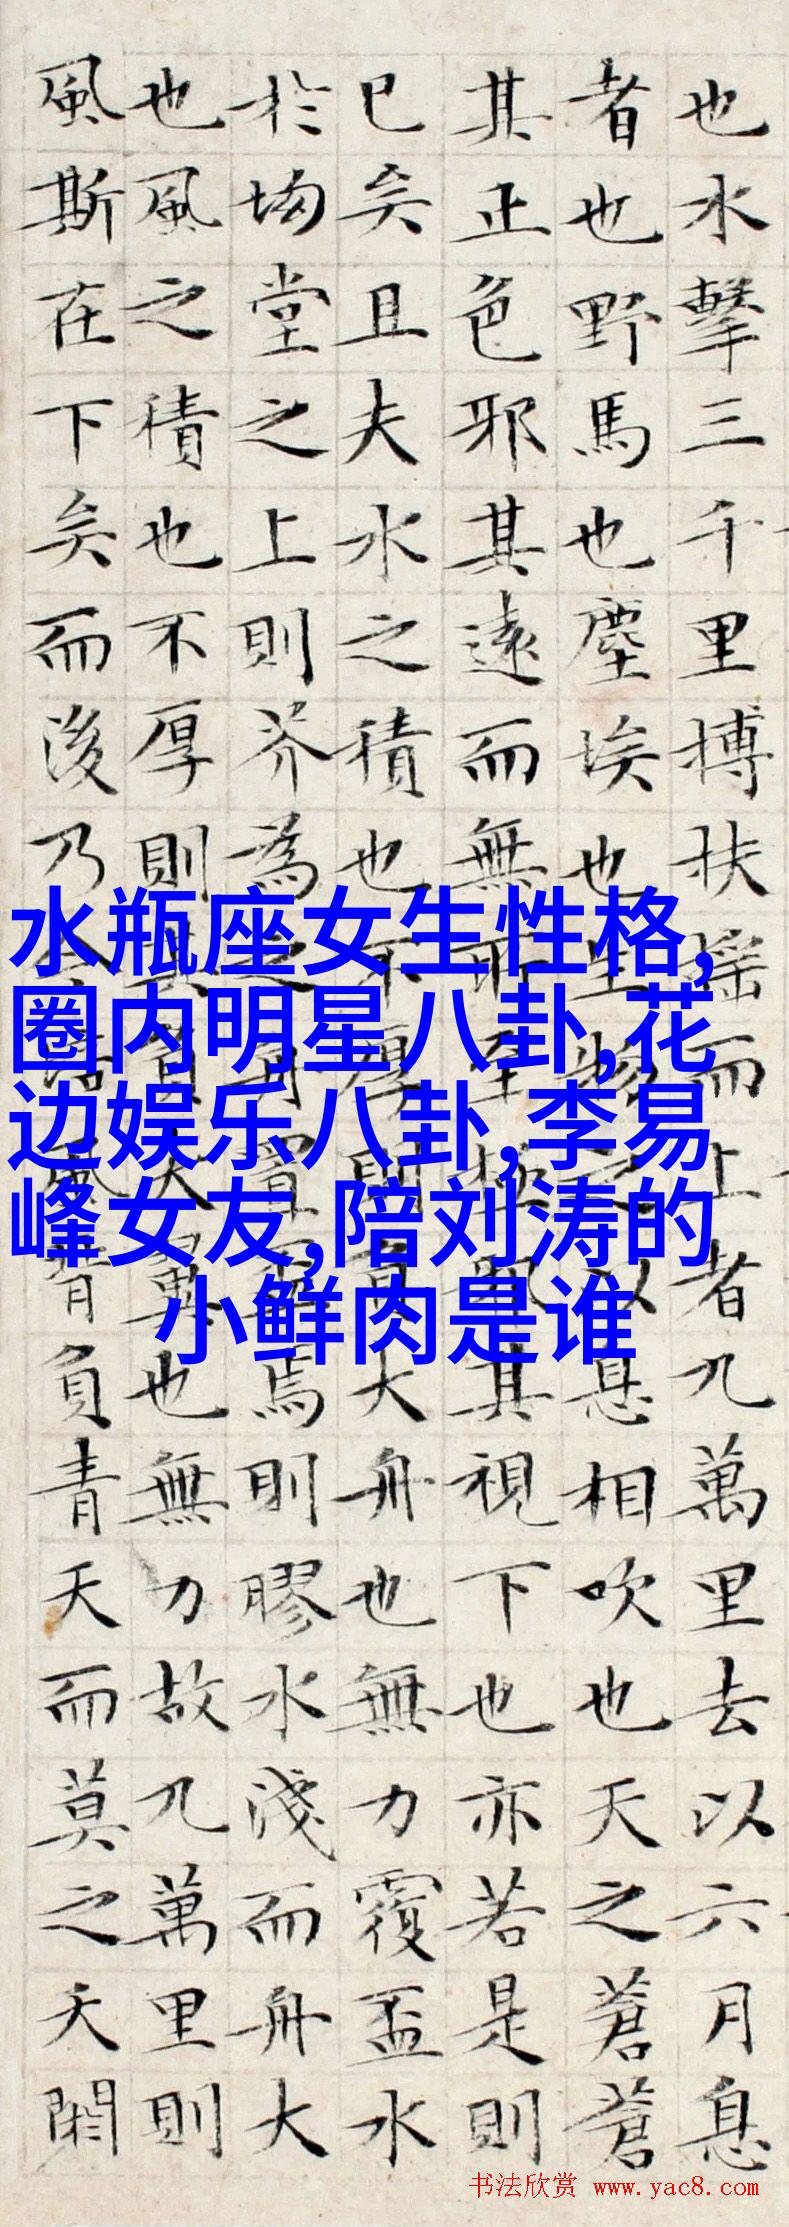 也水擊三千里搏扶搖而上者九萬里去以六月息
者也野馬也塵埃也生物之以息相吹也天之蒼蒼
其正色邪其遠而無所至極邪其視下也亦若是則
已矣且夫水之積也不厚則負大舟也無力覆盃水
於坳堂之上則芥為之舟置焉則膠水淺而舟大
也風之積也不厚則其負大翼也無力故九萬里則
風斯在下矣而後乃今培風背負青天而莫之夭閼
水瓶座女生性格,
圈内明星八卦,花
边娱乐八卦,李易
峰女友,陪刘涛的
小鲜肉是谁
书法欣赏 www.yac8.com